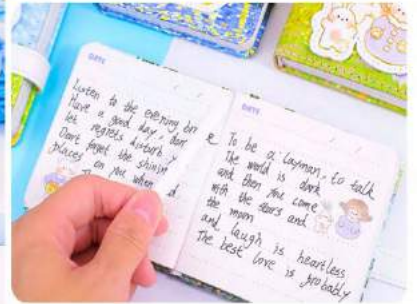 DATE
Listen to the evening
Have a good day, don't
let regrets disturb y
Don't forget the shinin
places
on you when
DATE
To be a layman, to talk
The world is dark
and then you come
with the stars and
the moon
and laugh is heartless
The best love is probably